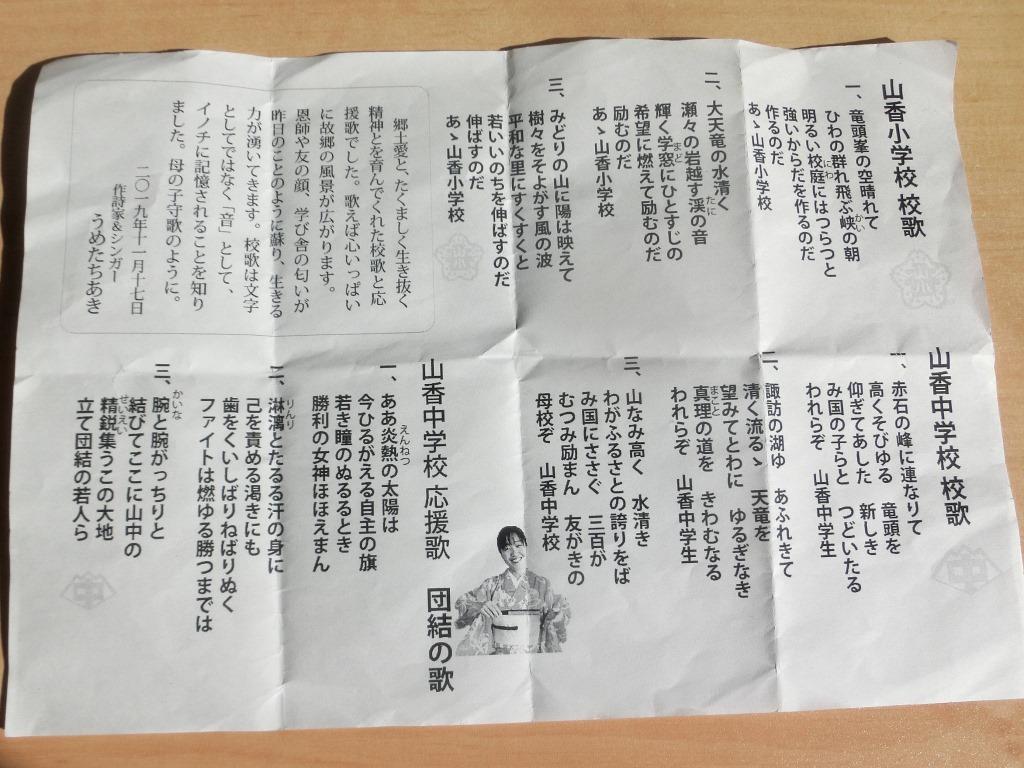 山香小学校 校歌
一、竜頭峯の空晴れて
ひわの群れ飛ぶ峡の朝
かい
明るい校庭にはつらつと
にわ
強いからだを作るのだ
作るのだ
あゝ山香小学校
二、大天竜の水清く
瀬々の岩越す渓の音
たに
輝く学窓にひとすじの
まど
希望に燃えて励むのだ
励むのだ
あゝ山香小学校
三、みどりの山に陽は映えて
樹々をそよがす風の波
平和な里にすくすくと
若いいのちを伸ばすのだ
伸ばすのだ
あゝ山香小学校
郷土愛と、たくましく生き抜く
精神とを育んでくれた校歌と応
援歌でした。歌えば心いっぱい
に故郷の風景が広がります。
恩師や友の顔、学び舎の匂いが
昨日のことのように蘇り、生きる
力が湧いてきます。校歌は文字
としてではなく「音」として、
イノチに記憶されることを知り
ました。母の子守歌のように。
二〇一九年十一月十七日
作詩家&シンガー
うめたちあき
山香中学校 校歌
一、赤石の峰に連なりて
高くそびゆる 竜頭を
仰ぎてあした 新しき
み国の子らと つどいたる
われらぞ 山香中学生
二、諏訪の湖ゆ あふれきて
清く流るゝ 天竜を
望みてとわに ゆるぎなき
真理の道を きわむなる
まこと
われらぞ 山香中学生
三、山なみ高く 水清き
わがふるさとの誇りをば
み国にささぐ 三百が
むつみ励まん 友がきの
母校ぞ 山香中学校
山香中学校 応援歌 団結の歌
一、ああ炎熱の太陽は
えんねつ
今ひるがえる自主の旗
若き瞳のぬるるとき
勝利の女神ほほえまん
二、淋漓とたるる汗の身に
りんり
己を責める渇きにも
歯をくいしばりねばりぬく
ファイトは燃ゆる勝つまでは
三、腕と腕がっちりと
かいな
結びてここに山中の
精鋭集うこの大地
せいえい
立て団結の若人ら
中
中